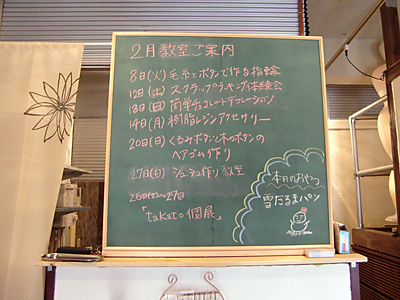 2月教室ご案内
8日(火)毛糸とボタンで作る指輪
12日(土)スクラップブッキング体験会
13日(日)簡単チョコレートデコレーション
14日(月)樹脂レジンアクセサリー
20日(日)くるみボタンと木のボタンの
ヘアゴム作り
27日(日)シュシュ作り教室
25日(金)〜27日
「takato個展」
本日のおやつ
雪だるまパン